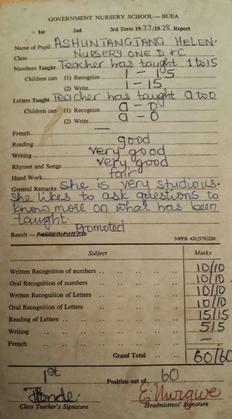 GOVERNMENT NURSERY SCHOOL — BUEA
1st 2nd 3rd Term 1977/1978 Report
Name of Pupil ASHUNTANGTANG HELEN.
Class NURSERY ONE D & C
Numbers Taught Teacher has taught 1 to 15
Children can (1) Recognize 1 - 15
(2) Write 1 - 15
Letters Taught Teacher has taught a to o
Children can (1) Recognize a - o
(2) Write a - o
French —
Reading good
Writing very good
Rhymes and Songs very good
Hand Work fair
General Remarks She is very studious.
She likes to ask questions to
know more on what has been
taught
Result — Promoted
Subject Marks
Written Recognition of numbers 10/10
Oral Recognition of numbers 10/10
Written Recognition of Letters 10/10
Oral Recognition of Letters 10/10
Reading of Letters 15/15
Writing 5/5
French —
Grand Total 60/60
1st Position out of 60
Class Teacher's Signature Headmistress' Signature